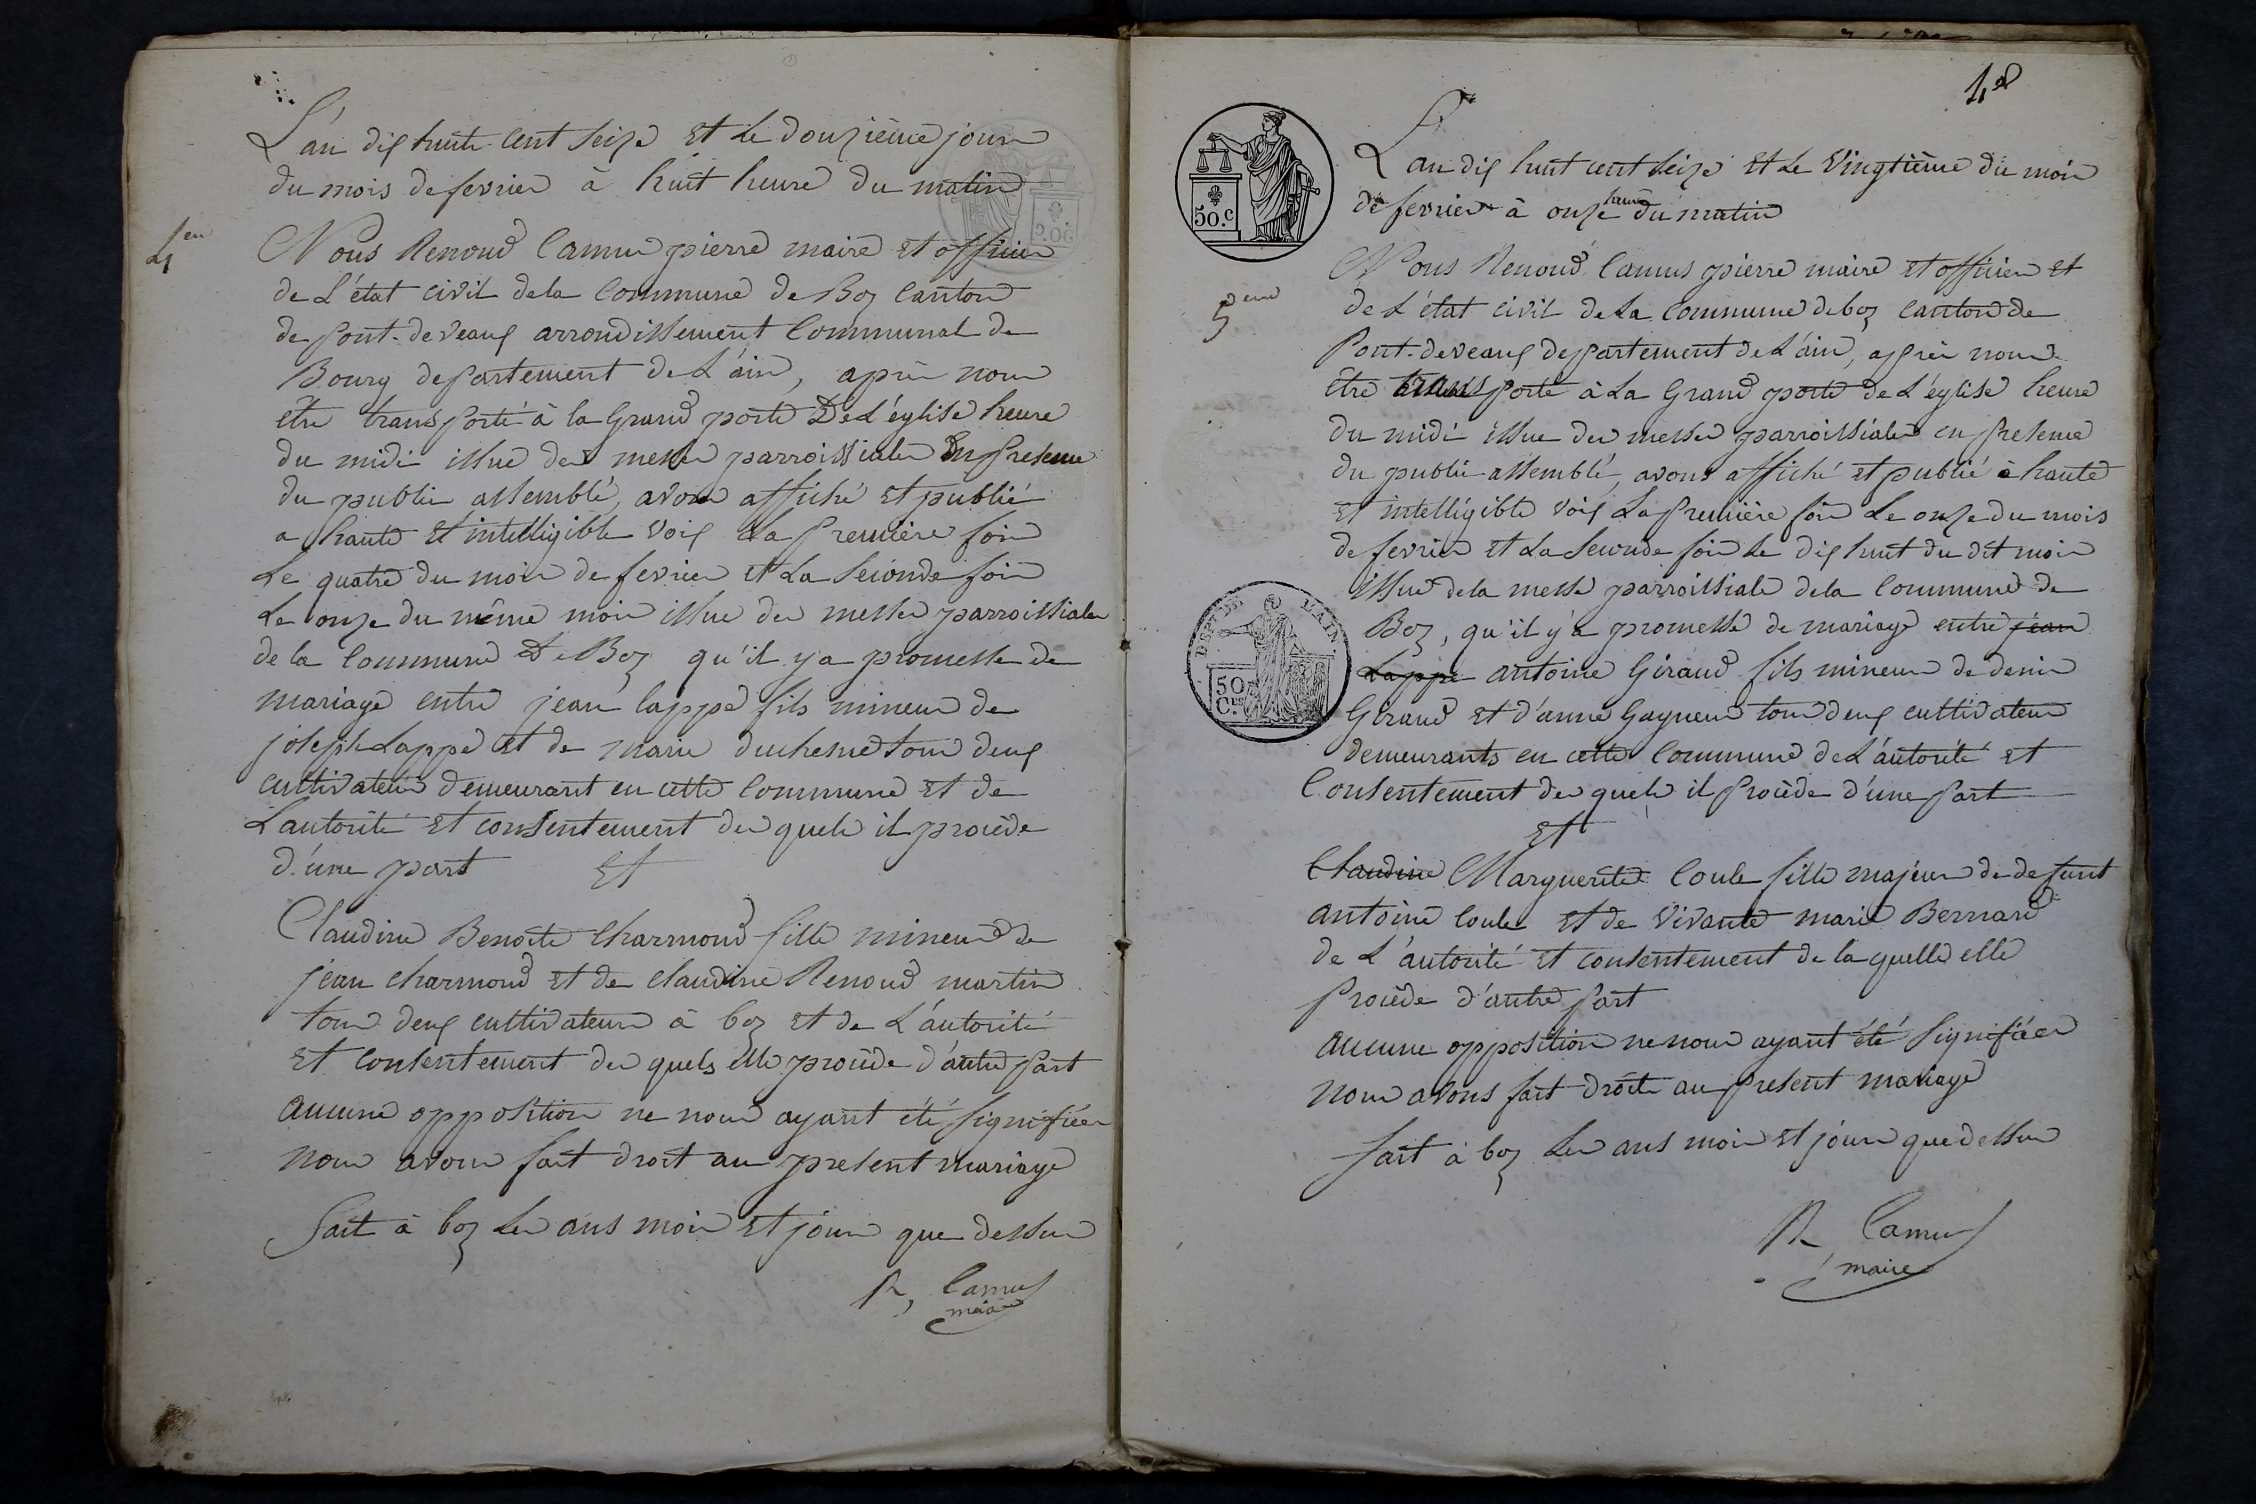 L'an dix huit cent seize et le douzième jour
du mois de fevrier à huit heure du matin
4eu
Nous Renoud Camus pierre maire et officier
de L'état civil dela Commune de Boz Canton
de Pont-de veaux arrondissement Communal de
Bourg departement de L'ain, après nous
être transporté à la Grand porte De L'église heure
du midi issue des messes parroissiales En presence
du public assemblé, avons affiché et publié
a haute et intelligible voix La premiere fois
Le quatre du mois de fevrier et La seconde fois
Le onze du même mois issue des messes parroissiales
de la Commune de Boz qu'il y a promesse de
mariage entre jean lappe fils mineur de
joseph Lappe et de marie duchesne tous deux
cultivateurs demeurant en cette Commune et de
L'autorité et consentement des quels il procède
d'une part Et
Claudine Benoite Charmond fille mineure de
jean Charmond et de Claudine Renoud martin
tous deux cultivateurs à boz et de L'autorité
et consentement des quels elle procède d'autre part
aucune opposition ne nous ayant été signifiées
nous avons fait droit au present mariage
fait à boz Les ans mois et jours que dessus
R, Camus
maire
4e
L'an dix huit cent seize et Le vingtième du mois
de fevrier à onze heure du matin
5eme
Nous Renoud Camus pierre maire et officier et
de L'état civil de La Commune de boz canton de
Pont-de veaux departement de L'ain, après nous
être transporté à La Grand porte de L'église heure
du midi issue des messes parroissiales en presence
du public assemblé, avons affiché et publié à haute
et intelligible voix La premiere fois Le onze du mois
de fevrier et La seconde fois le dix huit du dit mois
issue de la messe parroissiale dela Commune de
Boz, qu'il y a promesse de mariage entre jean
Lappe antoine Giraud fils mineur de denis
Giraud et d'anne Gagneur tous deux cultivateurs
demeurants en cette Commune de L'autorité et
Consentement des quels il Procède d'une part
Et
Claudine Marguerite Coule fille majeure de defunt
antoine Coule et de vivante marie Bernard
de L'autorité et consentement de la quelle elle
Procède d'autre part
aucune opposition ne nous ayant été signifiées
nous avons fait droit au present mariage
fait à boz Les ans mois et jours que dessus
R, Camus
maire
50.c
DEPT DE L'AIN.
50
C.es